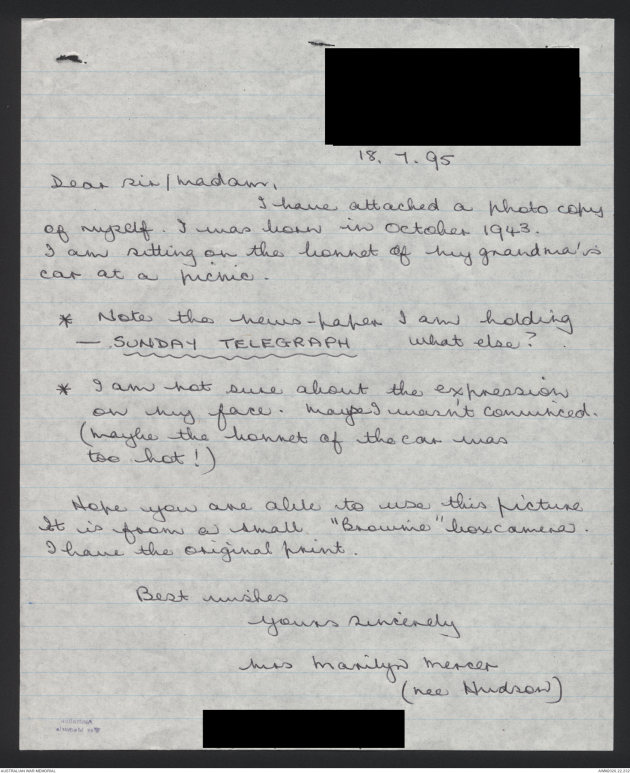 18. 7. 95
Dear Sir/Madam,
I have attached a photo copy
of myself. I was born in October 1943.
I am sitting on the bonnet of my grandma's
car at a picnic.
* Note the news-paper I am holding
— SUNDAY TELEGRAPH what else?
* I am not sure about the expression
on my face. Maybe I wasn't convinced.
(Maybe the bonnet of the car was
too hot!)
Hope you are able to use this picture
It is from a small "Brownie" box camera.
I have the original print.
Best wishes
Yours sincerely
Mrs Marilyn Mercer
(nee Hudson)
Australian
War Memorial
AUSTRALIAN WAR MEMORIAL